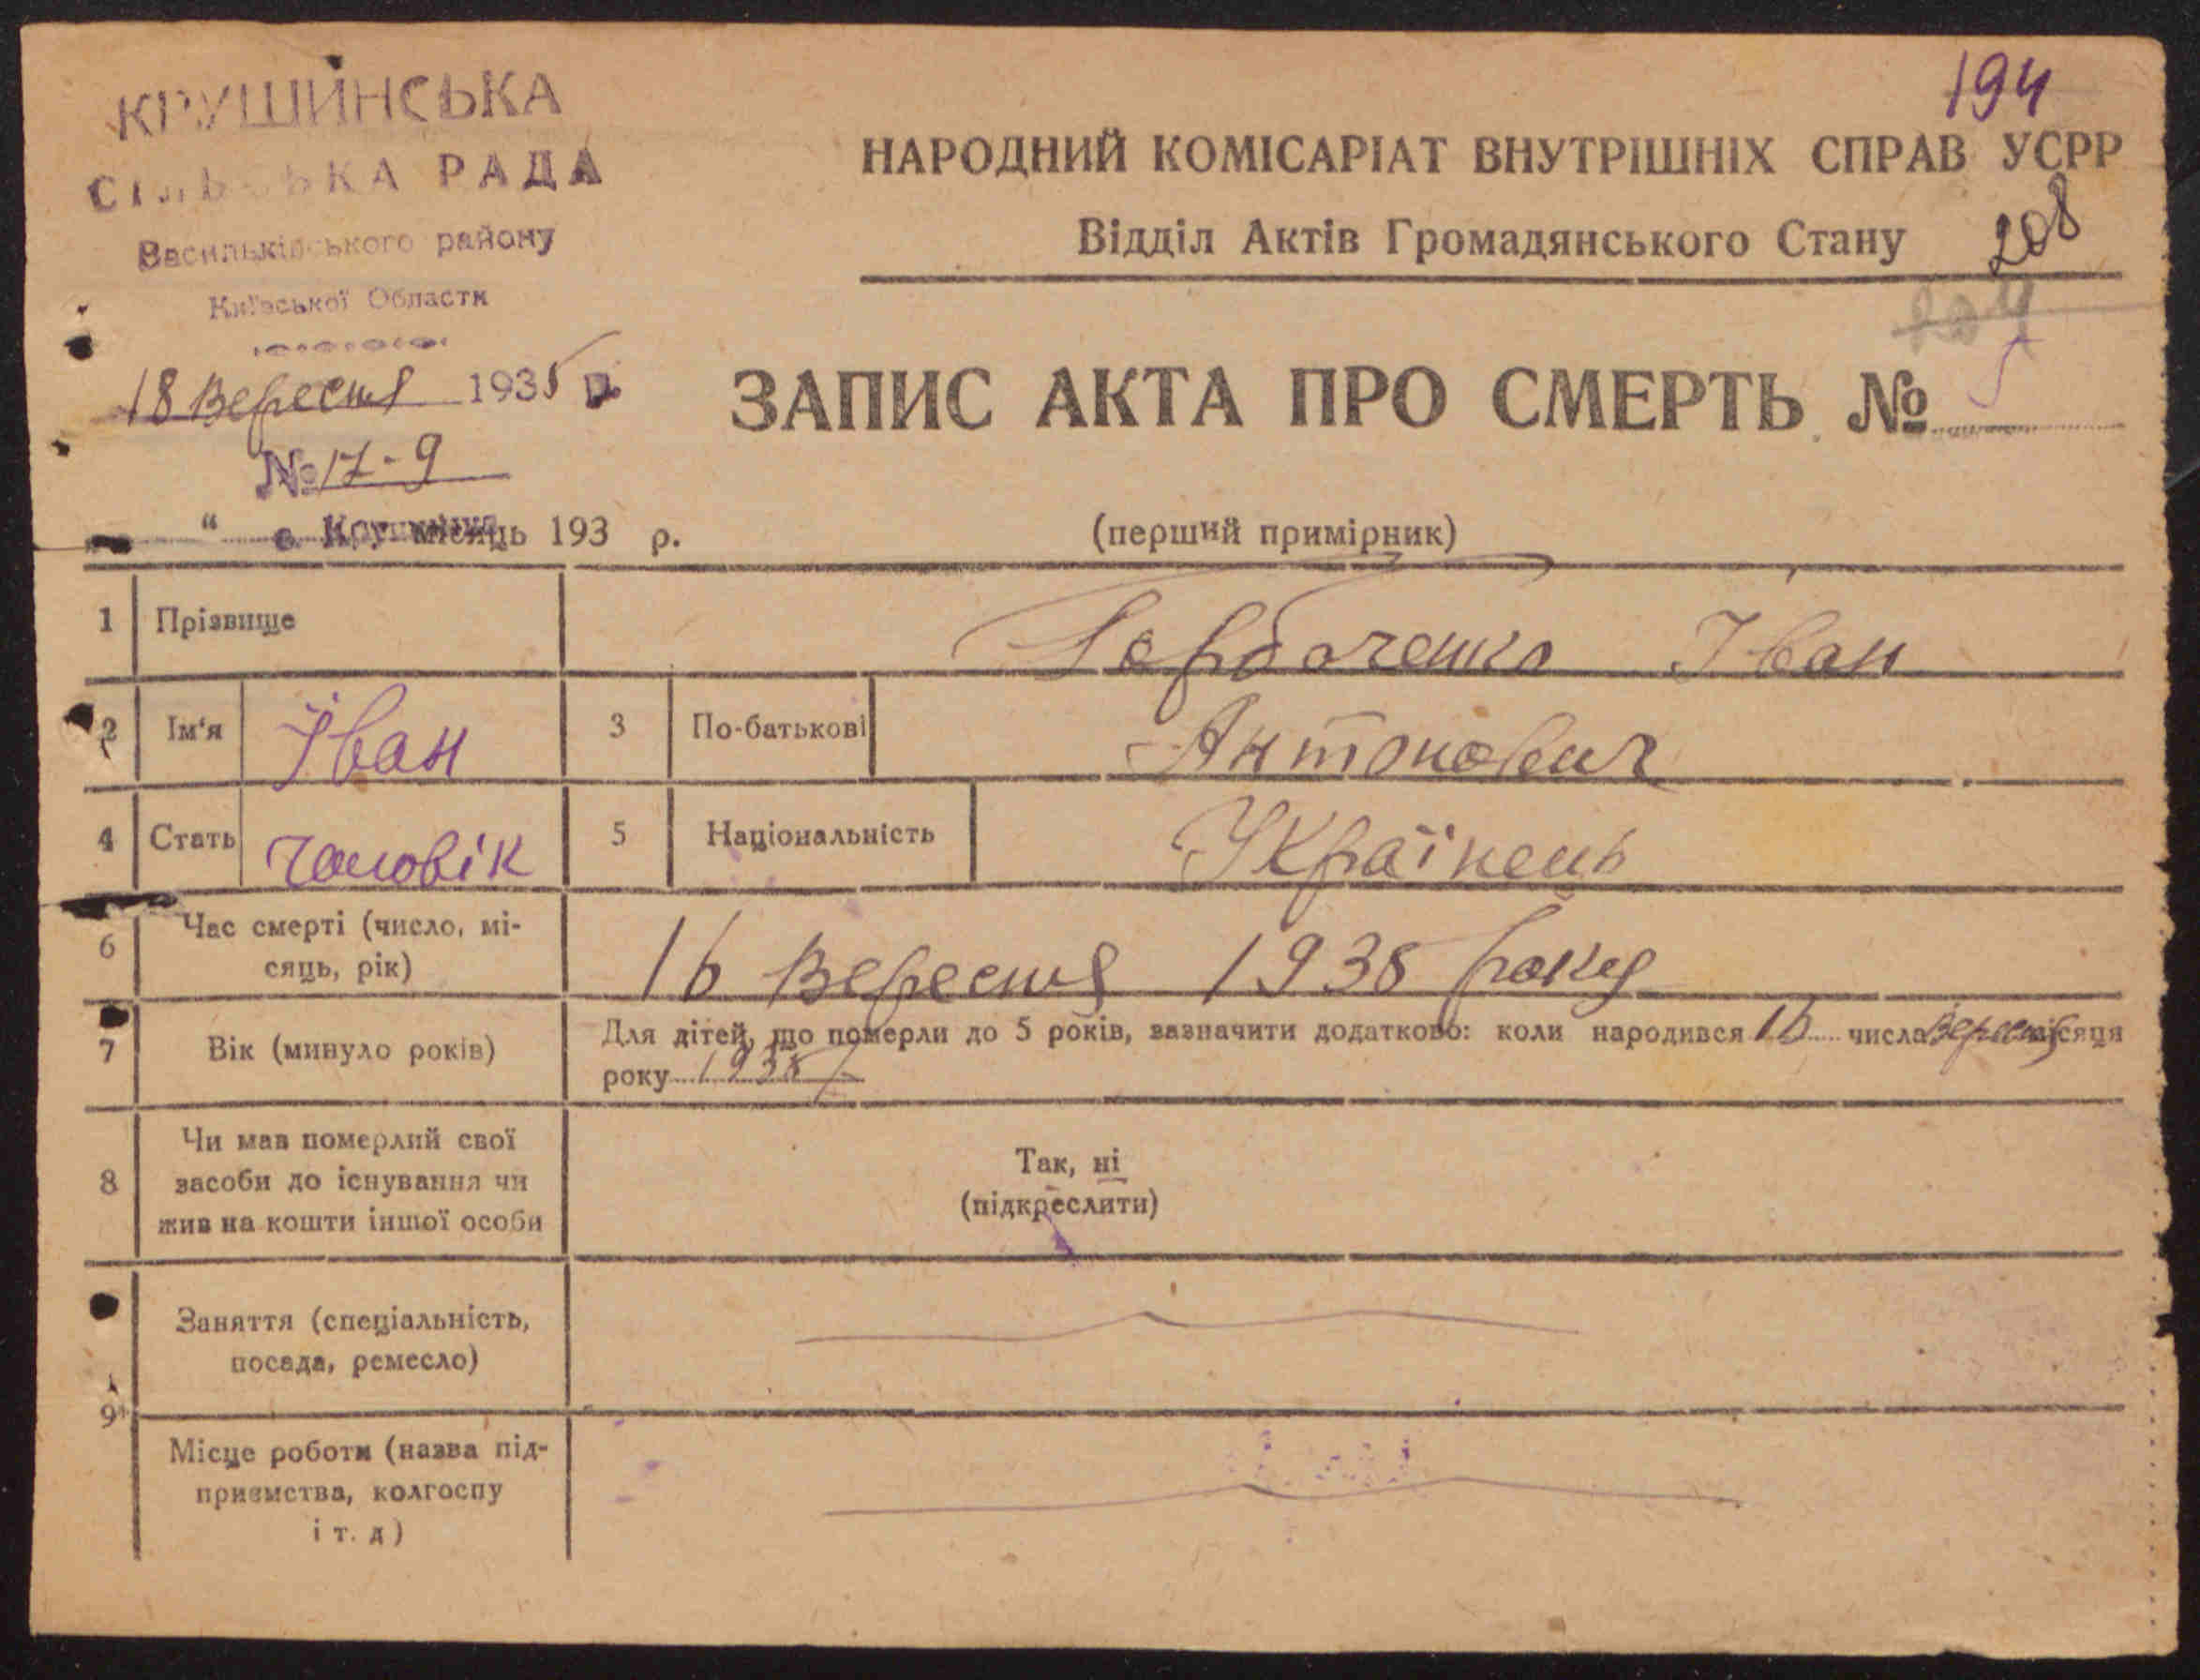 194
КРУШИНСЬКА
СІЛЬСЬКА РАДА
Васильківського району
Київської Области
18 Вересня 1935 р.
№ 17-9
с. Крушинка
НАРОДНИЙ КОМІСАРІАТ ВНУТРІШНІХ СПРАВ УСРР
Відділ Актів Громадянського Стану
208
204
ЗАПИС АКТА ПРО СМЕРТЬ № 5
" місяць 193 р.
(перший примірник)
1 Прізвище Горбаченко Іван
2 Ім'я Іван 3 По-батькові Антонович
4 Стать чоловік 5 Національність Українець
6 Час смерті (число, мі-
сяць, рік) 16 Вересня 1935 року
7 Вік (минуло років) Для дітей, що померли до 5 років, зазначити додатково: коли народився 16 числа Вересня місяця
року 1935
8 Чи мав померлий свої
засоби до існування чи
жив на кошти іншої особи
Так, ні
(підкреслити)
9 Заняття (спеціальність,
посада, ремесло)
Місце роботи (назва під-
приємства, колгоспу
і т. д)